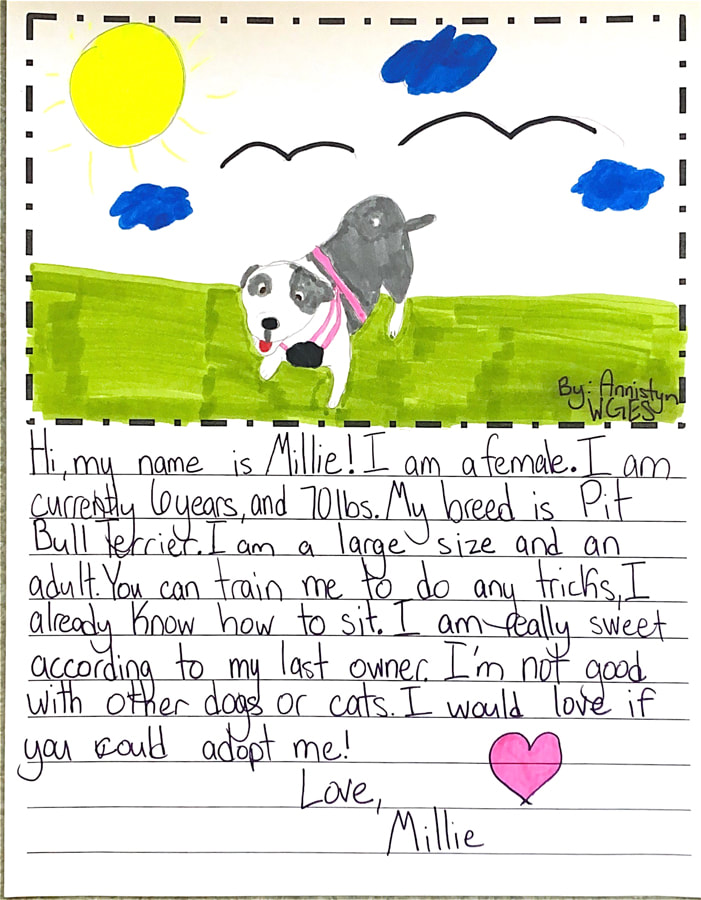 By: Annistyn
WGES
Hi, my name is Millie! I am a female. I am
currently 6 years, and 70 lbs. My breed is Pit
Bull Terrier. I am a large size and an
adult. You can train me to do any tricks, I
already know how to sit. I am really sweet
according to my last owner. I'm not good
with other dogs or cats. I would love if
you could adopt me!
Love,
Millie